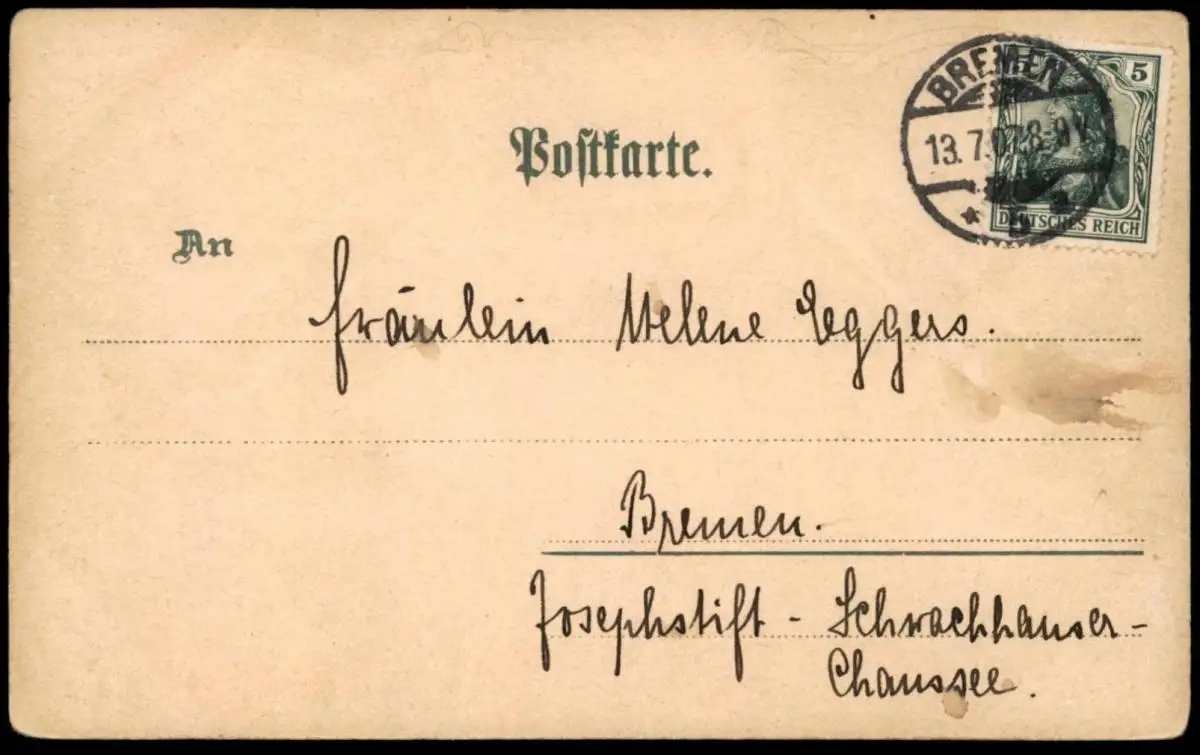 Postkarte.
An
BREMEN
13. 7. 07. 8-9 V.
5
DEUTSCHES REICH
Fräulein Helene Eggers.
Bremen.
Josephstift - Schwachhauser-
Chaussee.